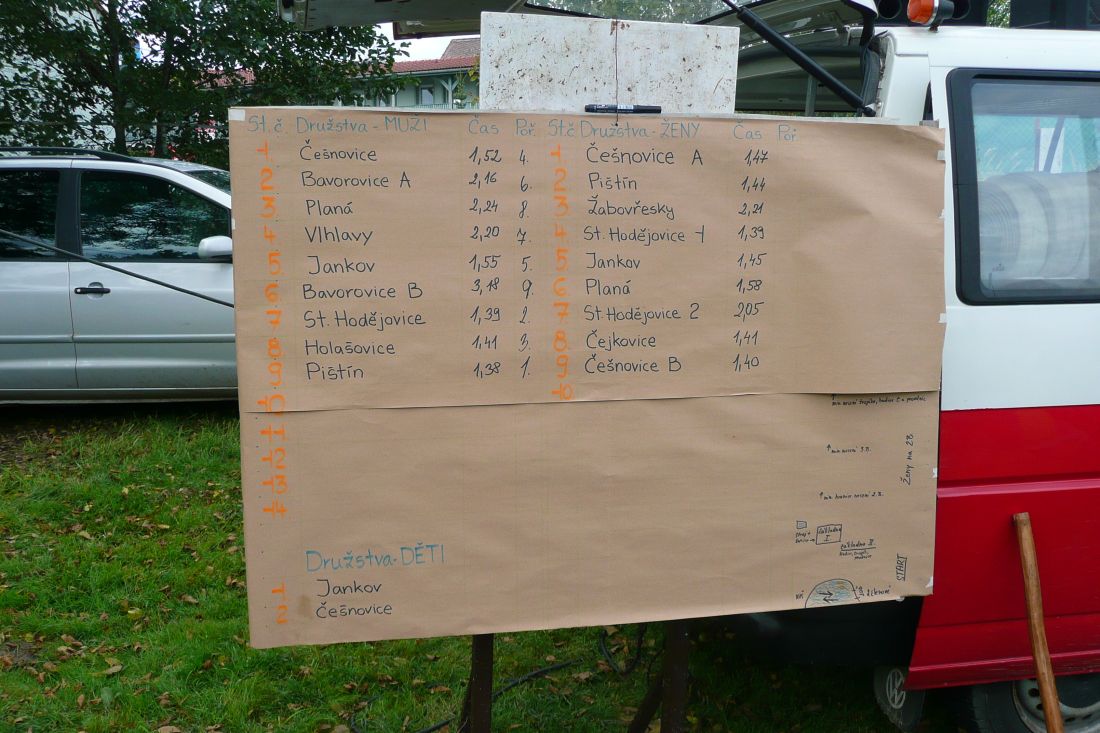 St.č. Družstva - MUŽI Čas Poř. St.č Družstva - ŽENY Čas Poř.
1 Češnovice 1,52 4. 1 Češnovice A 1,47
2 Bavorovice A 2,16 6. 2 Pištín 1,44
3 Planá 2,24 8. 3 Žabovřesky 2,21
4 Vlhlavy 2,20 7. 4 St. Hodějovice 1 1,39
5 Jankov 1,55 5. 5 Jankov 1,45
6 Bavorovice B 3,18 9. 6 Planá 1,58
7 St. Hodějovice 1,39 2. 7 St. Hodějovice 2 2,05
8 Holašovice 1,41 3. 8 Čejkovice 1,41
9 Pištín 1,38 1. 9 Češnovice B 1,40
10 10
11
12
13
14
Ženy na 2B
START
Družstva - DĚTI
1 Jankov
2 Češnovice